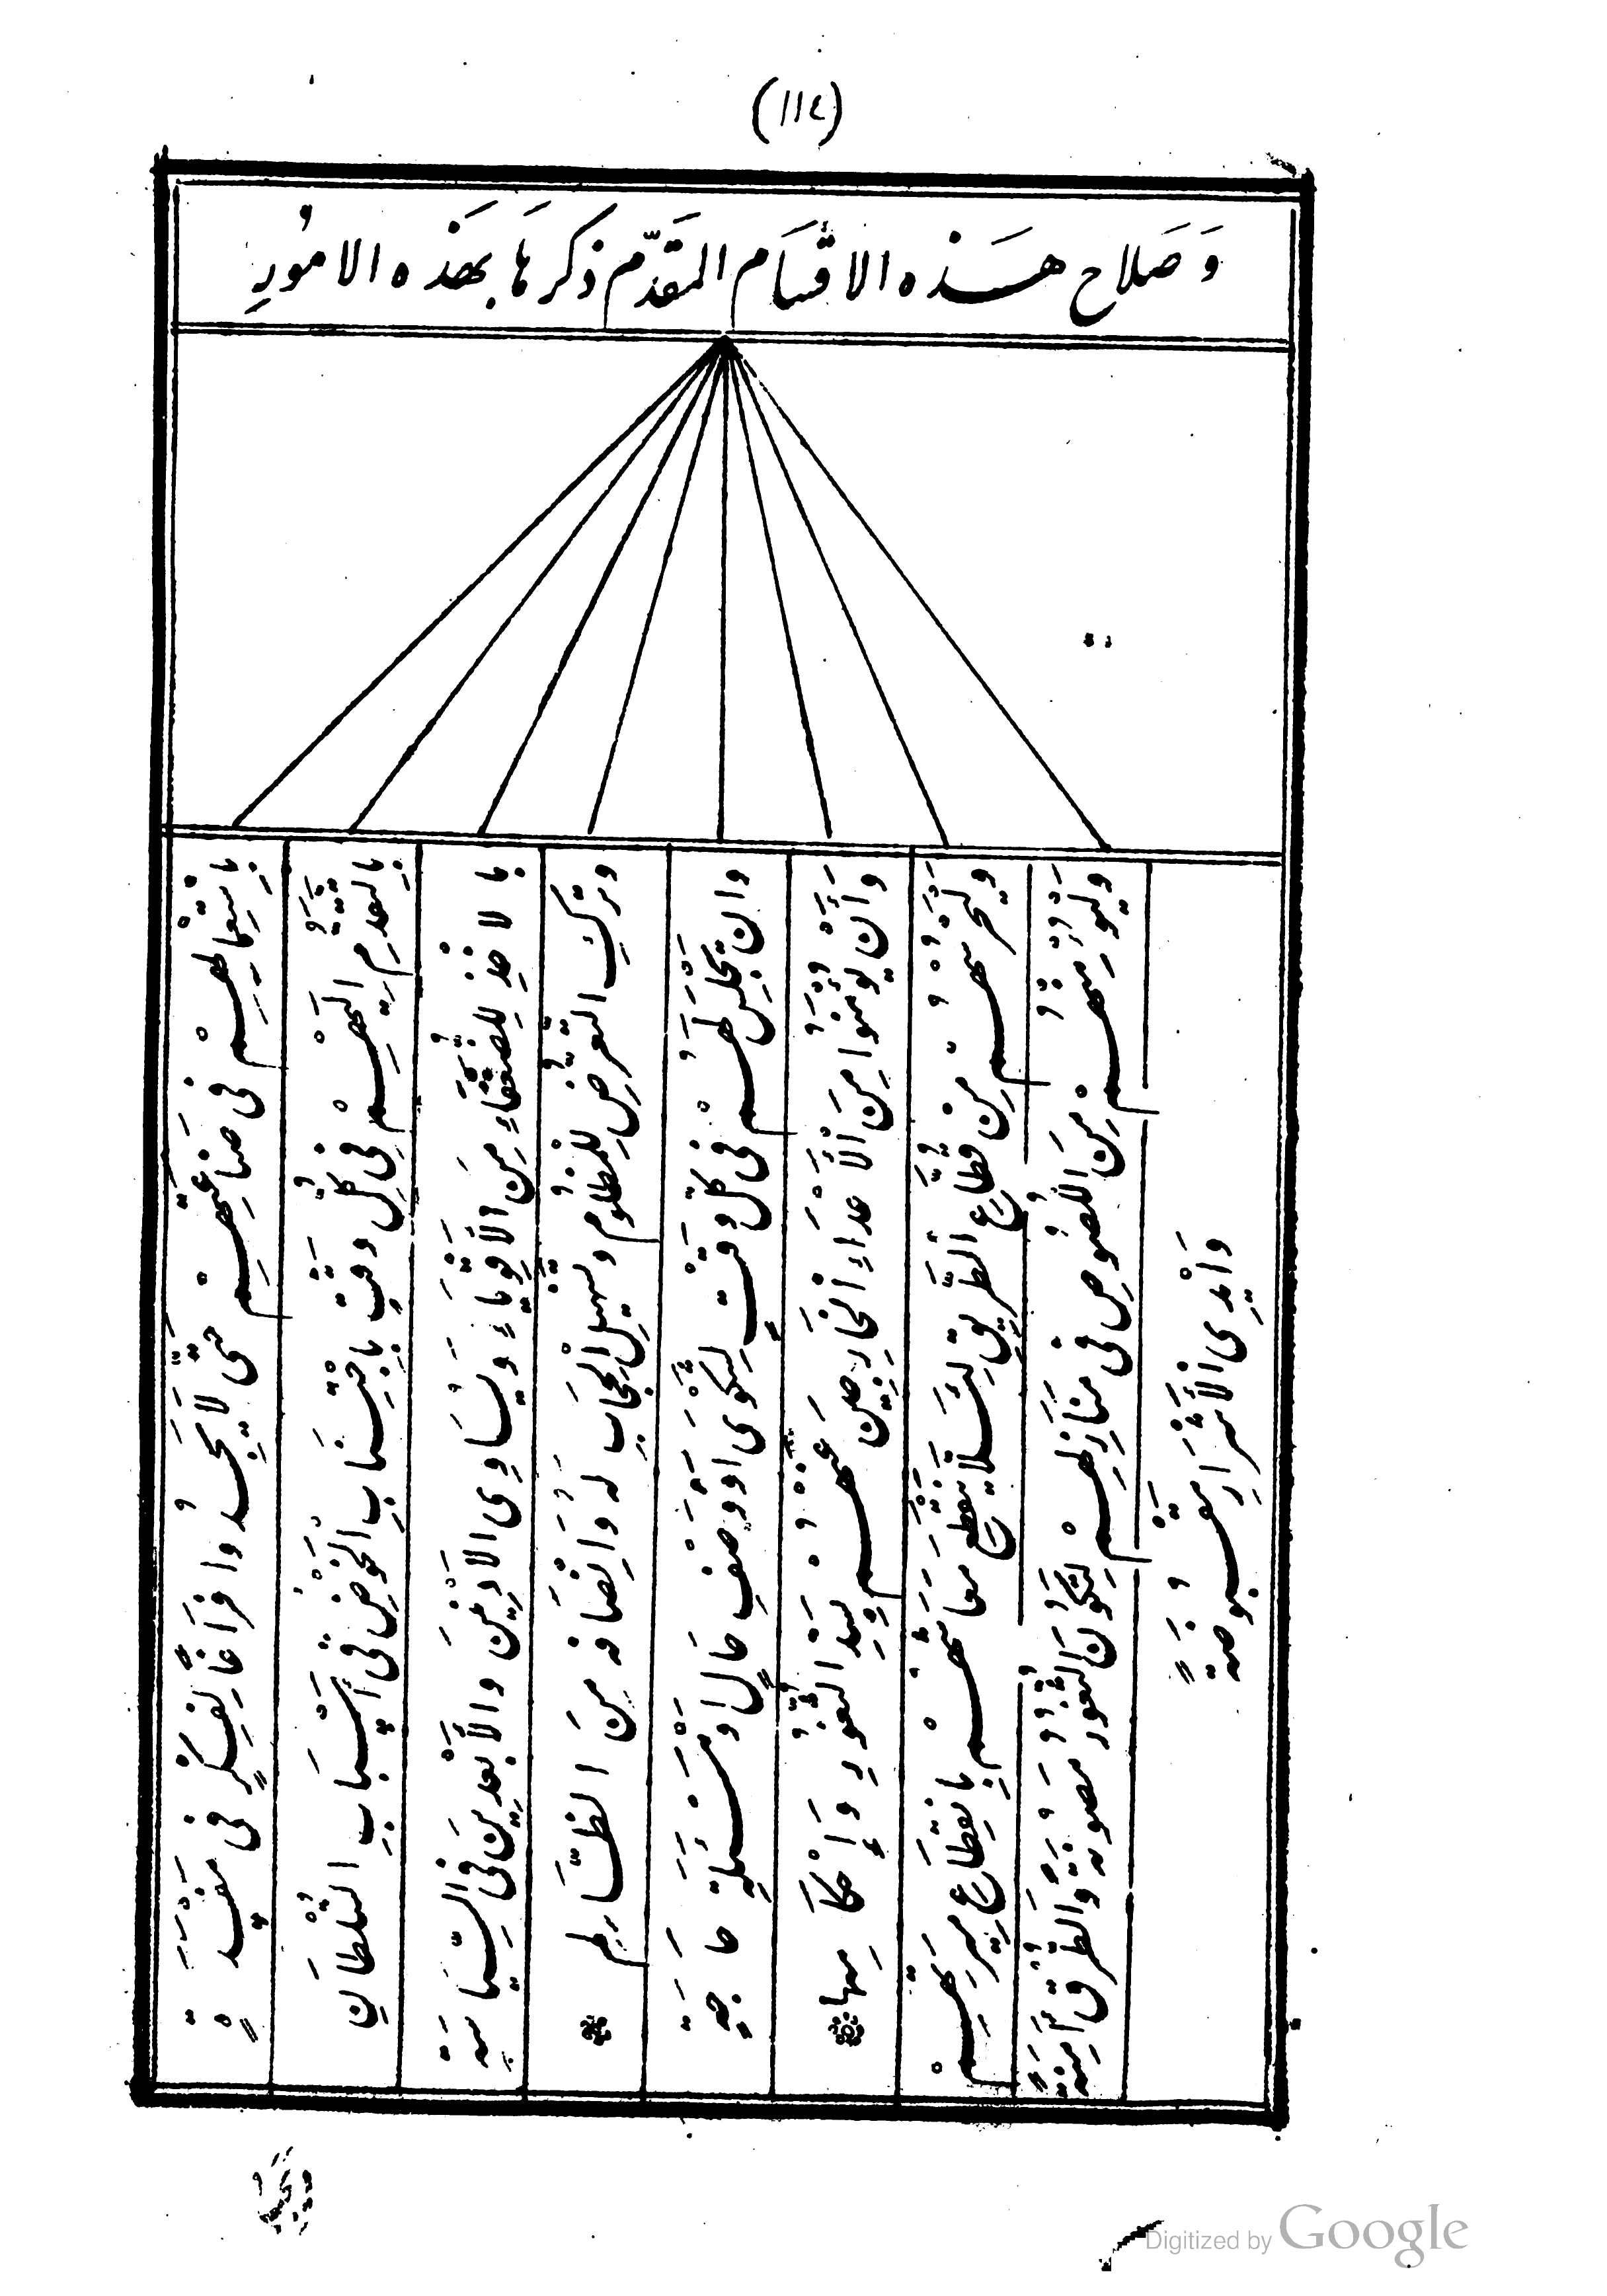 (١١٤)
وَصَلاح هَذه الاقْسَام المقَدّم ذكرهَا بهَذه الامُورِ
بِاسْتِعْمَالِهِمْ فى صَنَائِعِهِمْ حَتّى لَا يَجِدُوا فَرَاغًا لِفِكْرٍ فى مَفْسَدَةٍ
بِالتَّقَدُّمِ اِلَيْهِمْ فِى كُلِّ وَقْتٍ بِاجْتِنَابِ الْخَوْضِ فى أَسْبَابِ السُلْطَانِ
بالاخْذِ لِلضُّعَفَاءِ مِنَ الأَقْوِيَاءِ وَيُسَاوِى الأَدْنَيْنَ والأَبْعَدِينَ فى السِّيَاسَةِ
وتَرْكِ التَّعَرُّضِ لِلْمَظْلُومِ وتَسْهِيلِ الْحِجَابِ لَهُ وَاِنْصَافه مِنَ الظَّالِم
وان يَجْلِسَ لَهُمْ فى كُلّ وَقْتٍ لِشَكْوَى اَوْ وَصْفِ حَالٍ اَوْ مَسْئَلَةِ حَاجَةٍ
وَأَنْ يُؤْمَنُوا مِنَ الْأَعْدَاءِ الْخَارِجِينَ عَنْهُمْ بِسَدِّ الثُّغُورِ وَإِحْكَامِهَا
وَيَحْرُسَهُمْ مِنْ قُطَّاعِ الطَّرِيقِ لِئَلَّا يَنْقَطِعَ مَعَاشُهُمْ بِانْقِطَاعِ مِيَرِهِمْ
وَيُؤَمِّنَهُمْ مِنَ اللُّصُوصِ فى مَنَازِلِهِمْ لِتَكُونَ الثُّغُورُ مَصُونَةً وَالطُّرُقُ أَمِنَةً
وَأَيْدِى الْأَشْرَارِ مَقْبُوضَةً
Digitized by Google